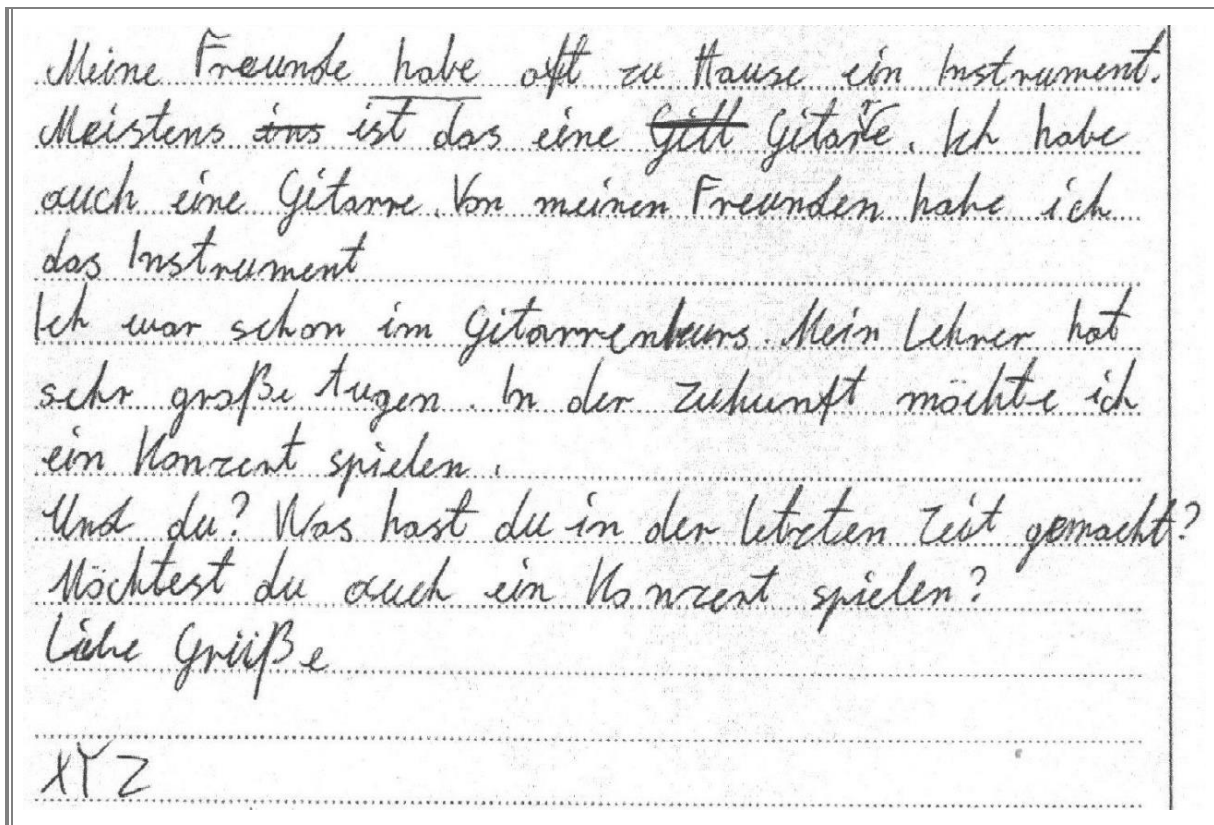 Meine Freunde habe oft zu Hause ein Instrument.
Meistens ins ist das eine Gitt Gitarre. Ich habe
auch eine Gitarre. Von meinen Freunden habe ich
das Instrument
Ich war schon im Gitarrenkurs. Mein Lehrer hat
sehr große Augen. In der Zukunft möchte ich
ein Konzert spielen.
Und du? Was hast du in der letzten Zeit gemacht?
Möchtest du auch ein Konzert spielen?
Liebe Grüße
XYZ